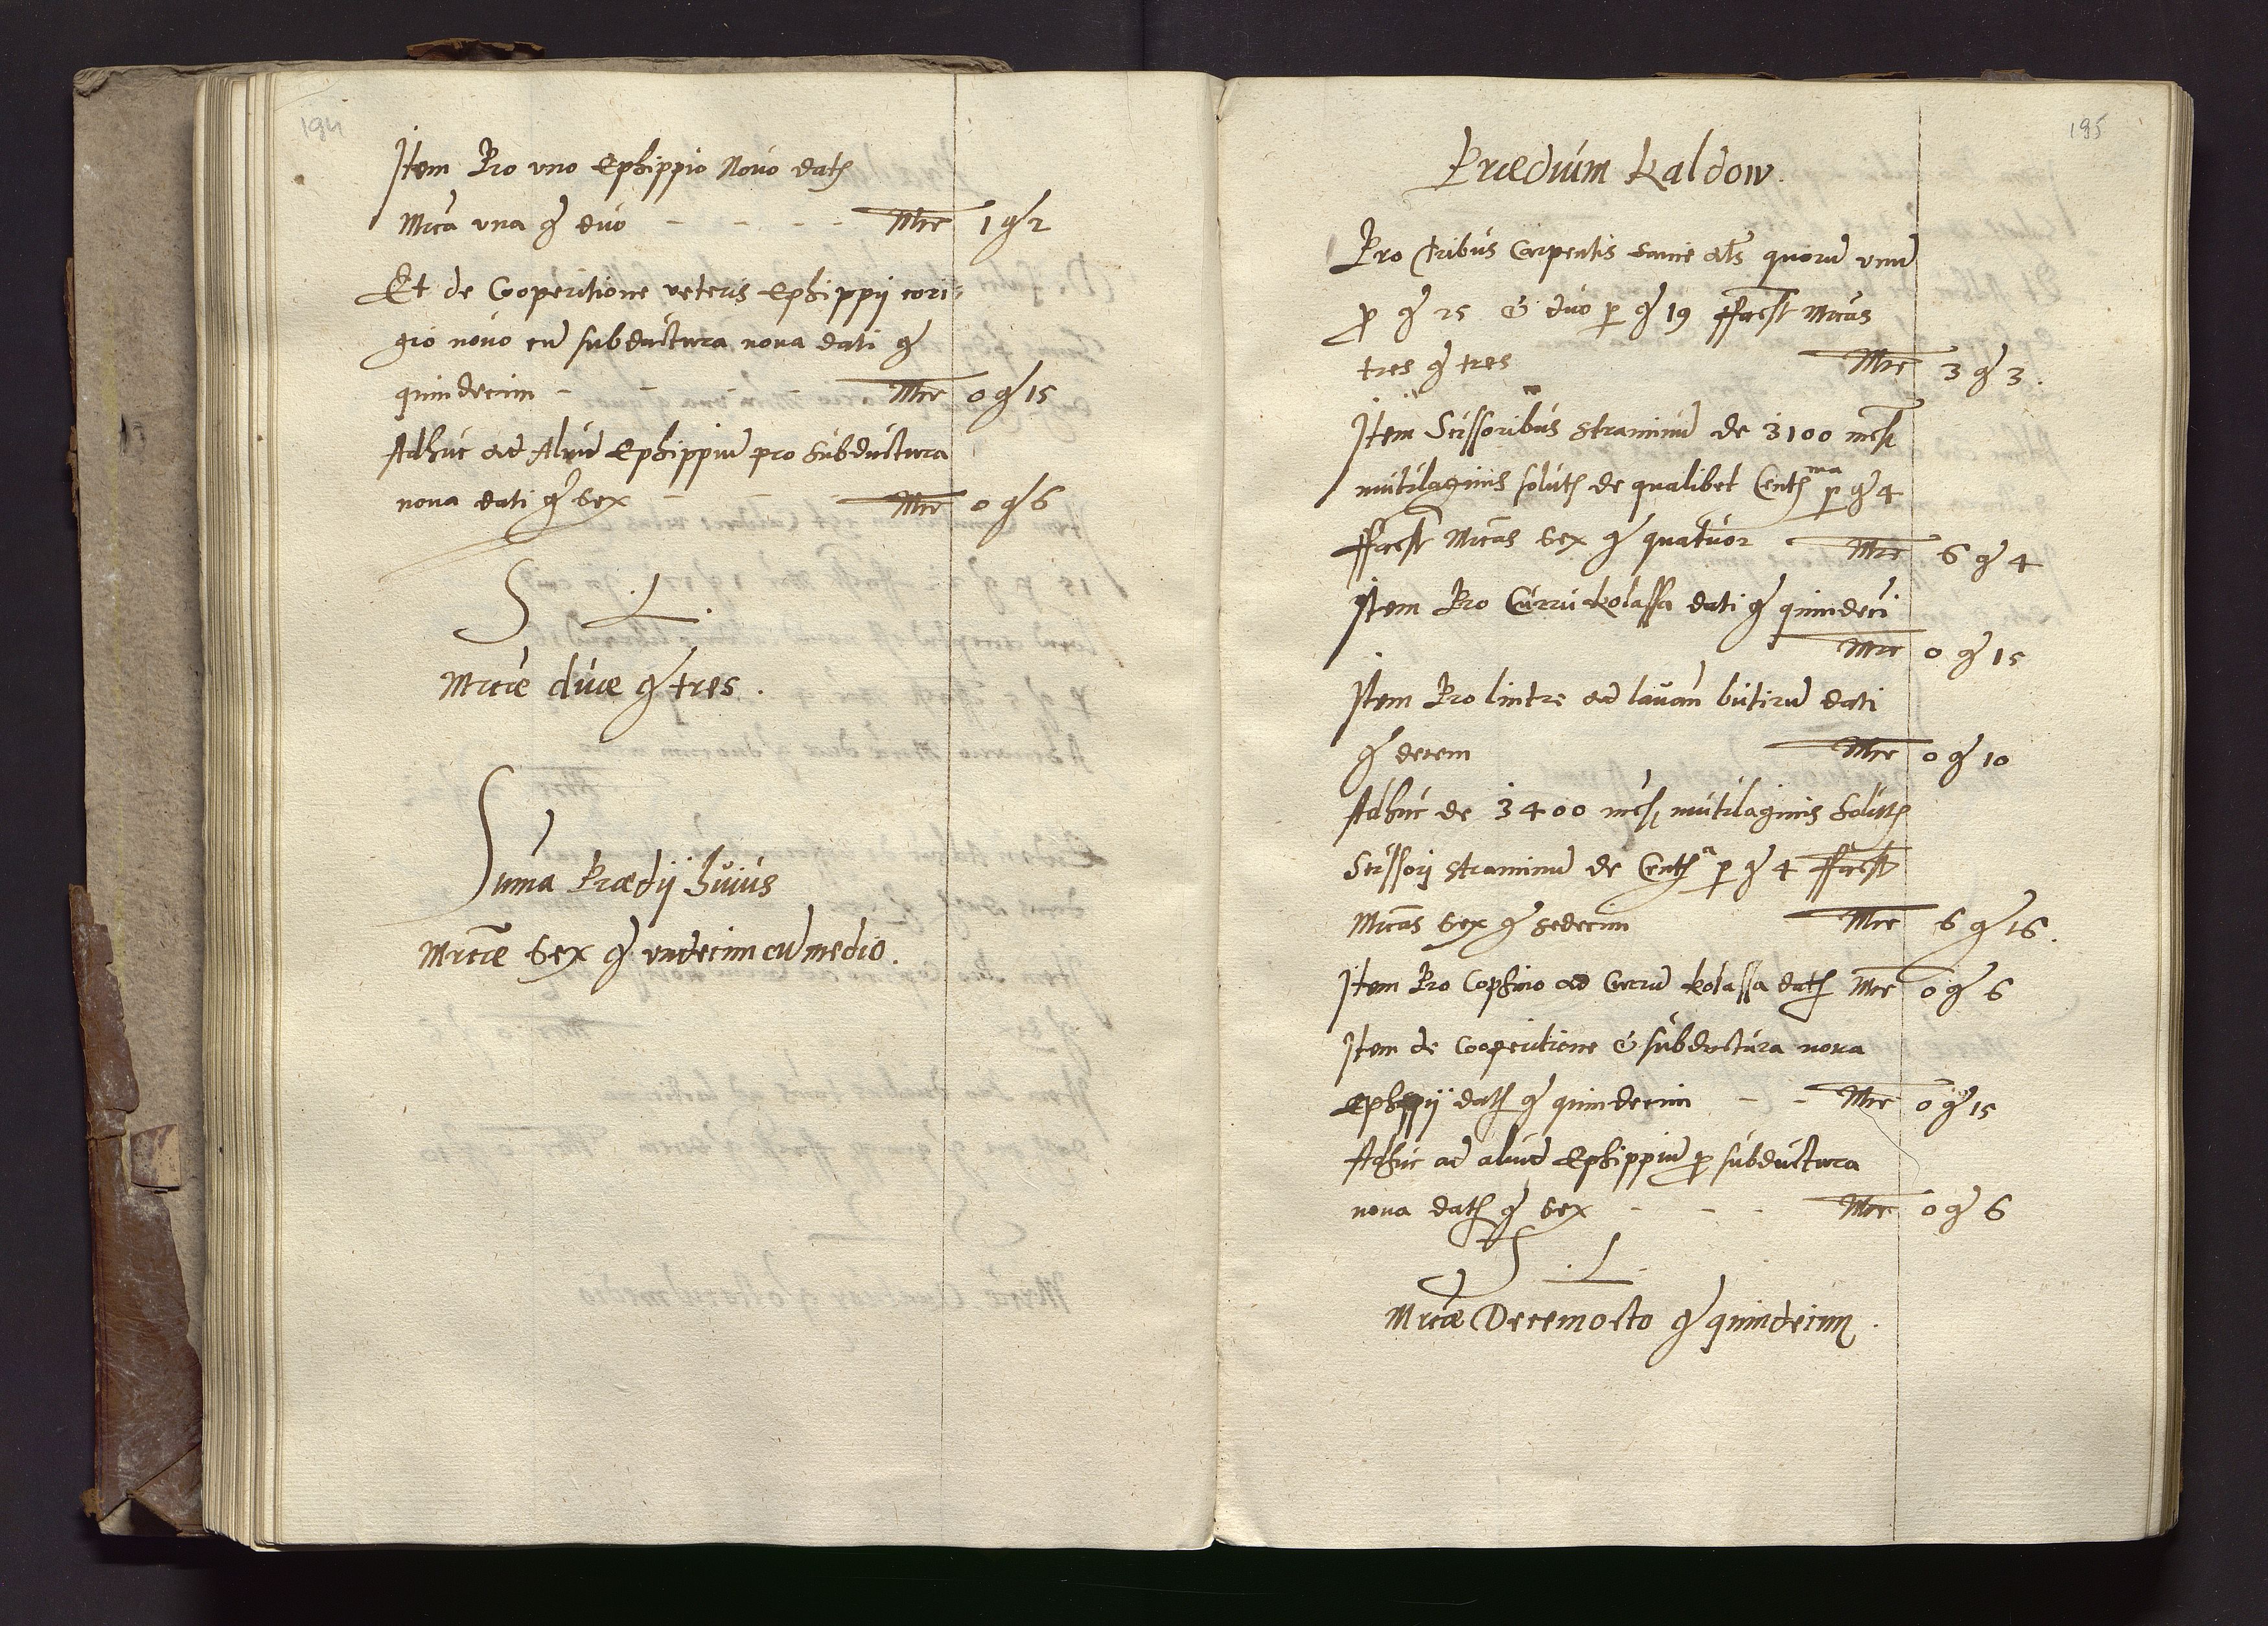 194
Item Pro vno Ephippio Novo dat
Mrca vna g duo - - - - Mrc 1 g 2
Et de Cooperitione veteris Ephippij cori-
gio novo cu subductura nova dati g
quindecim - - - - Mrc 0 g 15
Adhuc ad Aliud Ephippiu pro subductura
nova dati g sex - - - Mrc 0 g 6
S L.
Mrcae duae g tres.
Suma Praedij huius
Mrcae sex g vndecim cu medio.
195
Praedium Kaldow.
Pro tribus Carpentis quoru vnu
p g 25 & duo p g 19 ffacst Mrcas
tres g tres Mrc 3 g 3.
Item Scissoribus straminu de 3100
mutilaginis solut de qualibet Cent ma p g 4
ffacst Mrcas sex g quatuor - Mrc 6 g 4
Item Pro Curru kolassa dati g quindeci
Mrc 0 g 15
Item Pro lintre ad lavan butiru dati
g decem Mrc 0 g 10
Adhuc de 3400 mutilaginis Solut
Scissorj straminu de Cent a p g 4 ffacst
Mrcas sex g sedecim Mrc 6 g 16.
Item Pro Cophino ad Curru kolassa dat Mrc 0 g 6
Item de Cooperitione & subductura nova
Ephippij dat g quindecim - - Mrc 0 g 15
Adhuc ad aliud Ephippiu p subductura
nova dat g sex - - - Mrc 0 g 6
S L.
Mrcae Decemocto g quindecim.